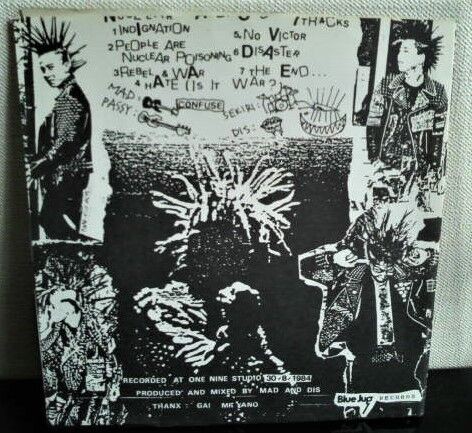 NUCLEAR ADDICTS 7TRACKS
1 INDIGNATION
2 PEOPLE ARE
NUCLEAR POISONING
3 REBEL & WAR
4 HATE (IS IT WAR?)
5 NO VICTOR
6 DISASTER
7 THE END...
MAD:
PASSY:
CONFUSE
SEKIRI:
DIS:
RECORDED AT ONE NINE STUDIO 30-8-1984
PRODUCED AND MIXED BY MAD AND DIS
THANX : GAI MR YANO
Blue Jug RECORDS